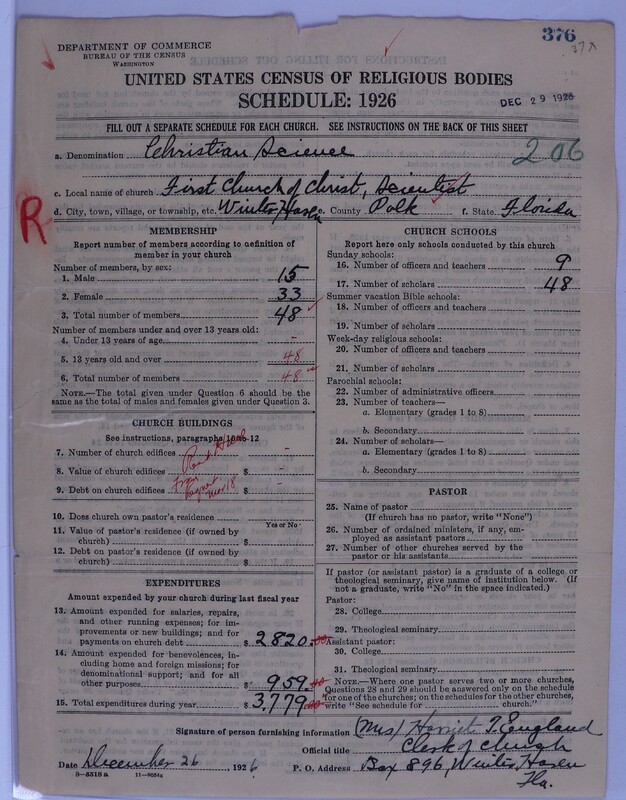 376
37A
DEPARTMENT OF COMMERCE
BUREAU OF THE CENSUS
WASHINGTON
UNITED STATES CENSUS OF RELIGIOUS BODIES
SCHEDULE: 1926
DEC 29 1926
FILL OUT A SEPARATE SCHEDULE FOR EACH CHURCH. SEE INSTRUCTIONS ON THE BACK OF THIS SHEET
a. Denomination Christian Science
206
c. Local name of church First Church of Christ, Scientist
R
d. City, town, village, or township, etc. Winter Haven e. County Polk f. State Florida
MEMBERSHIP
Report number of members according to definition of
member in your church
Number of members, by sex:
1. Male 15
2. Female 33
3. Total number of members 48
Number of members under and over 13 years old:
4. Under 13 years of age -
5. 13 years old and over 48
6. Total number of members 48
NOTE.—The total given under Question 6 should be
same as the total of males and females given under Question 3.
CHURCH BUILDINGS
See instructions, paragraphs 10 to 12
7. Number of church edifices -
8. Value of church edifices $ -
9. Debt on church edifices $ -
10. Does church own pastor's residence
Yes or No
11. Value of pastor's residence (if owned by
church) $
12. Debt on pastor's residence (if owned by
church) $
EXPENDITURES
Amount expended by your church during last fiscal year
13. Amount expended for salaries, repairs,
and other running expenses; for im-
provements or new buildings; and for
payments on church debt $ 2820.00
14. Amount expended for benevolences, in-
cluding home and foreign missions; for
denominational support; and for all
other purposes $ 959.00
15. Total expenditures during year $ 3,779.00
CHURCH SCHOOLS
Report here only schools conducted by this church
Sunday schools:
16. Number of officers and teachers 9
17. Number of scholars 48
Summer vacation Bible schools:
18. Number of officers and teachers
19. Number of scholars
Week-day religious schools:
20. Number of officers and teachers
21. Number of scholars
Parochial schools:
22. Number of administrative officers
23. Number of teachers—
a. Elementary (grades 1 to 8)
b. Secondary
24. Number of scholars—
a. Elementary (grades 1 to 8)
b. Secondary
PASTOR
25. Name of pastor
(If church has no pastor, write "None")
26. Number of ordained ministers, if any, em-
ployed as assistant pastors
27. Number of other churches served by the
pastor or his assistants
If pastor (or assistant pastor) is a graduate of a college or
theological seminary, give name of institution below. (If
not a graduate, write "No" in the space indicated.)
Pastor:
28. College
29. Theological seminary
Assistant pastor:
30. College
31. Theological seminary
NOTE.—Where one pastor serves two or more churches,
Questions 28 and 29 should be answered only on the schedule
for one of the churches; on the schedules for the other churches,
write "See schedule for church."
Signature of person furnishing information (Mrs) Harriet T. England
Official title Clerk of Church
Date December 26 1926 P. O. Address Box 896, Winter Haven
Fla.
8-5518 a 11-9554a